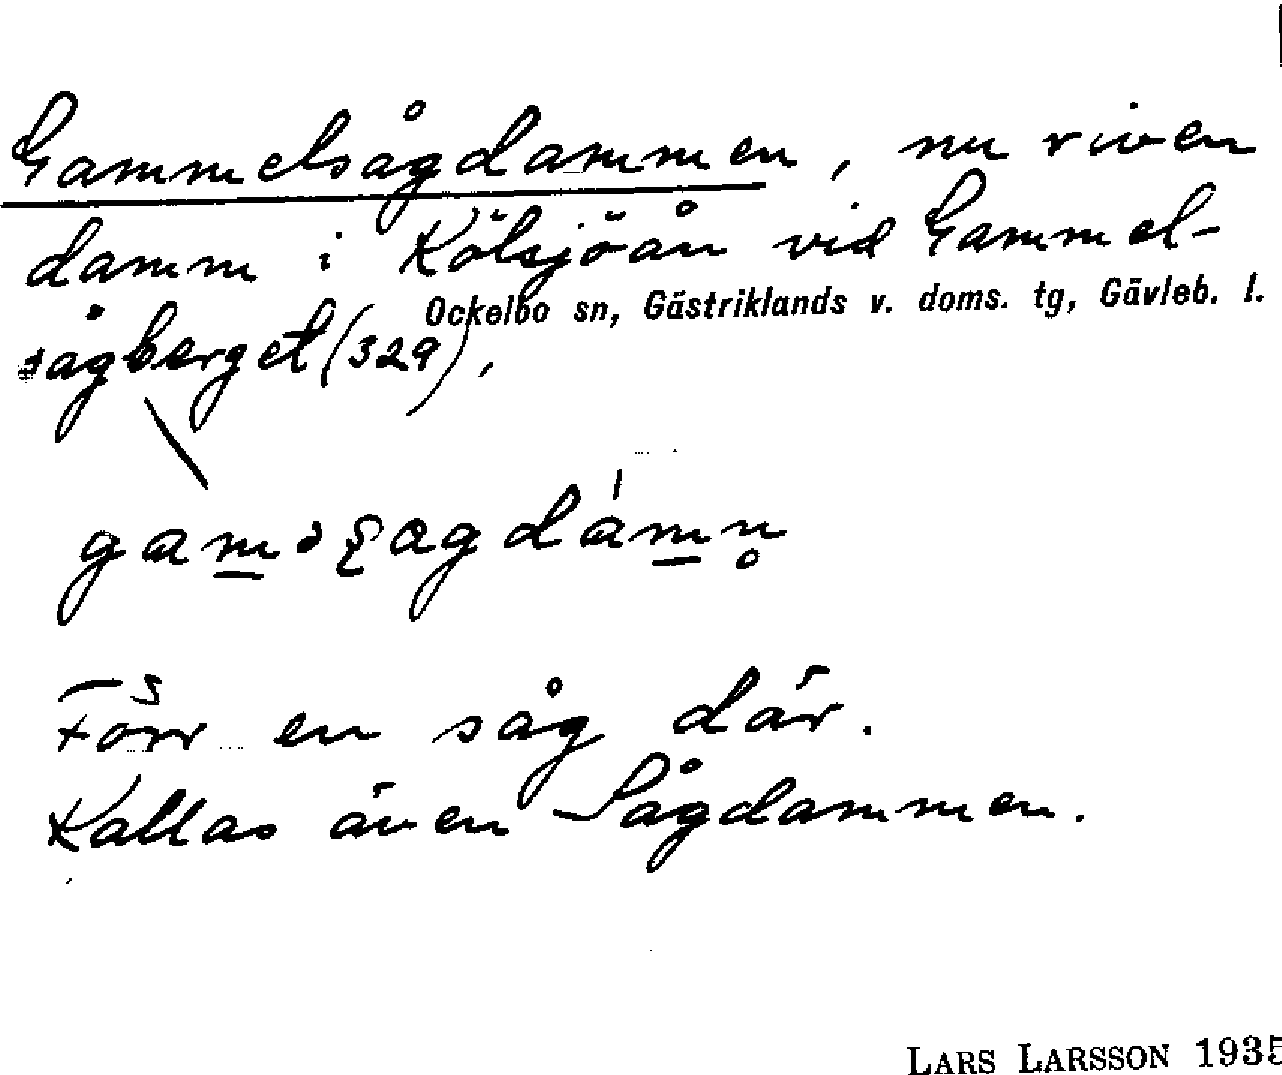 Gammelsågdammen, nu riven
damm i Kölsjöån vid Gammel-
Ockelbo sn, Gästriklands v. doms. tg, Gävleb. l.
sågberget (329),
Förr en såg där.
Kallas även Sågdammen.
LARS LARSSON 1935